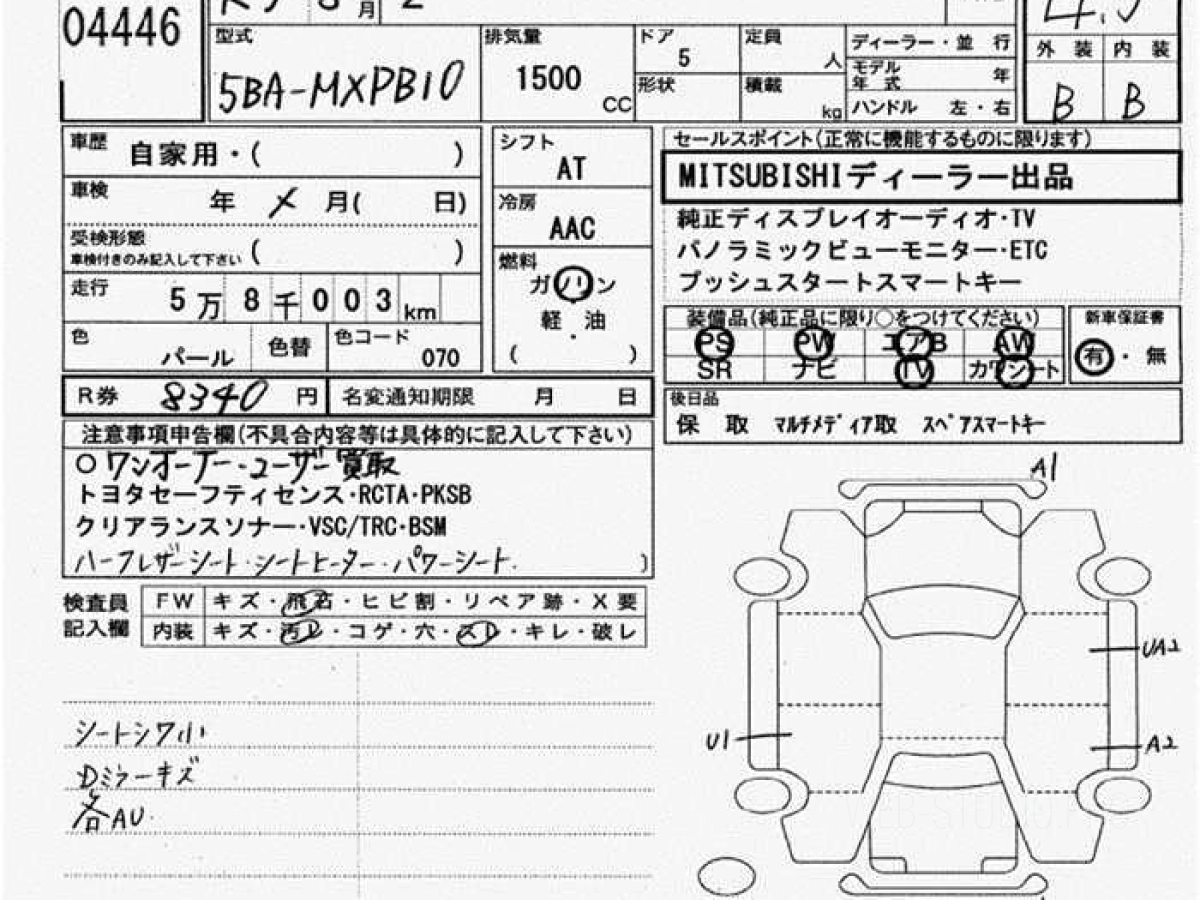 04446
月 2
4.5
型式
5BA-MXPB10
排気量
1500
CC
ドア
5
形状
定員
人
積載
kg
ディーラー・並 行
モデル年式 年
ハンドル 左・右
外 装 内 装
B B
車歴
自家用・( )
車検
年 メ 月( 日)
受検形態
車検付きのみ記入して下さい ( )
走行
5万8千003km
色
パール
色替
色コード
070
シフト
AT
冷房
AAC
燃料
ガソリン
軽・油
( )
セールスポイント(正常に機能するものに限ります)
MITSUBISHIディーラー出品
純正ディスプレイオーディオ・TV
パノラミックビューモニター・ETC
プッシュスタートスマートキー
装備品(純正品に限り○をつけてください)
PS PW エアB AW
SR ナビ TV カワシート
新車保証書
有・無
R券 8340 円
名変通知期限 月 日
後日品
保 取 マルチメディア取 スペアスマートキー
注意事項申告欄(不具合内容等は具体的に記入して下さい)
○ワンオーナー・ユーザー買取
トヨタセーフティセンス・RCTA・PKSB
クリアランスソナー・VSC/TRC・BSM
ハーフレザーシート・シートヒーター・パワーシート. )
検査員記入欄
FW キズ・飛石・ヒビ割・リペア跡・X要
内装 キズ・汚レ・コゲ・穴・スレ・キレ・破レ
シートシワ小
Dミラーキズ
各AU.
A1
UA2
U1
A2